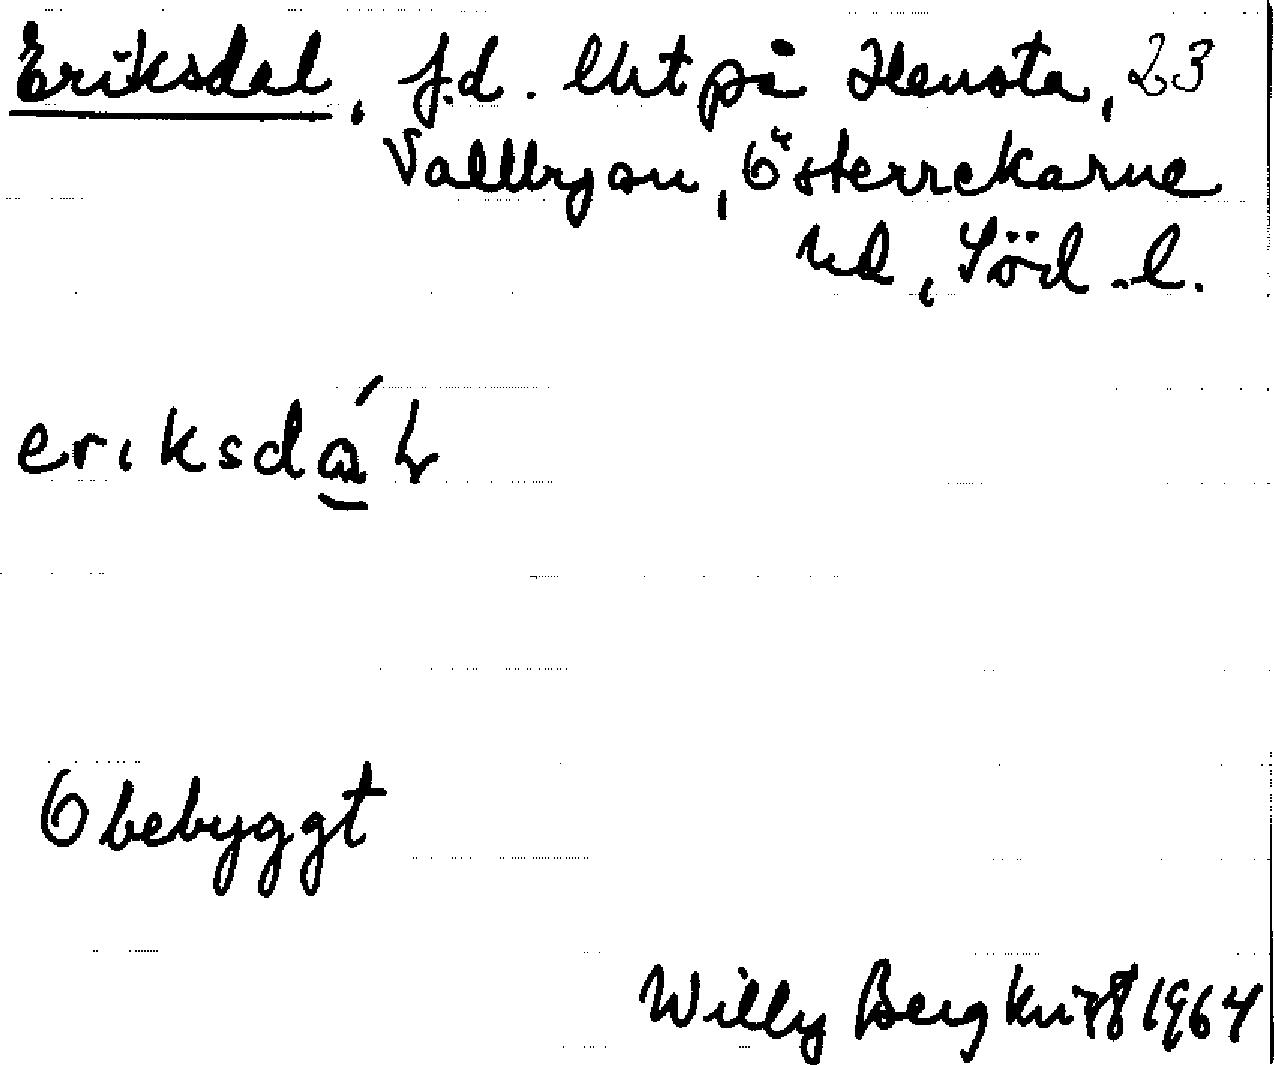 Eriksdal, f.d. lht på Hensta, 23
Vallby sn, Österrekarne
hd, Söd.l.
eriksdá̱l
Obebyggt
Willy Berg 1964